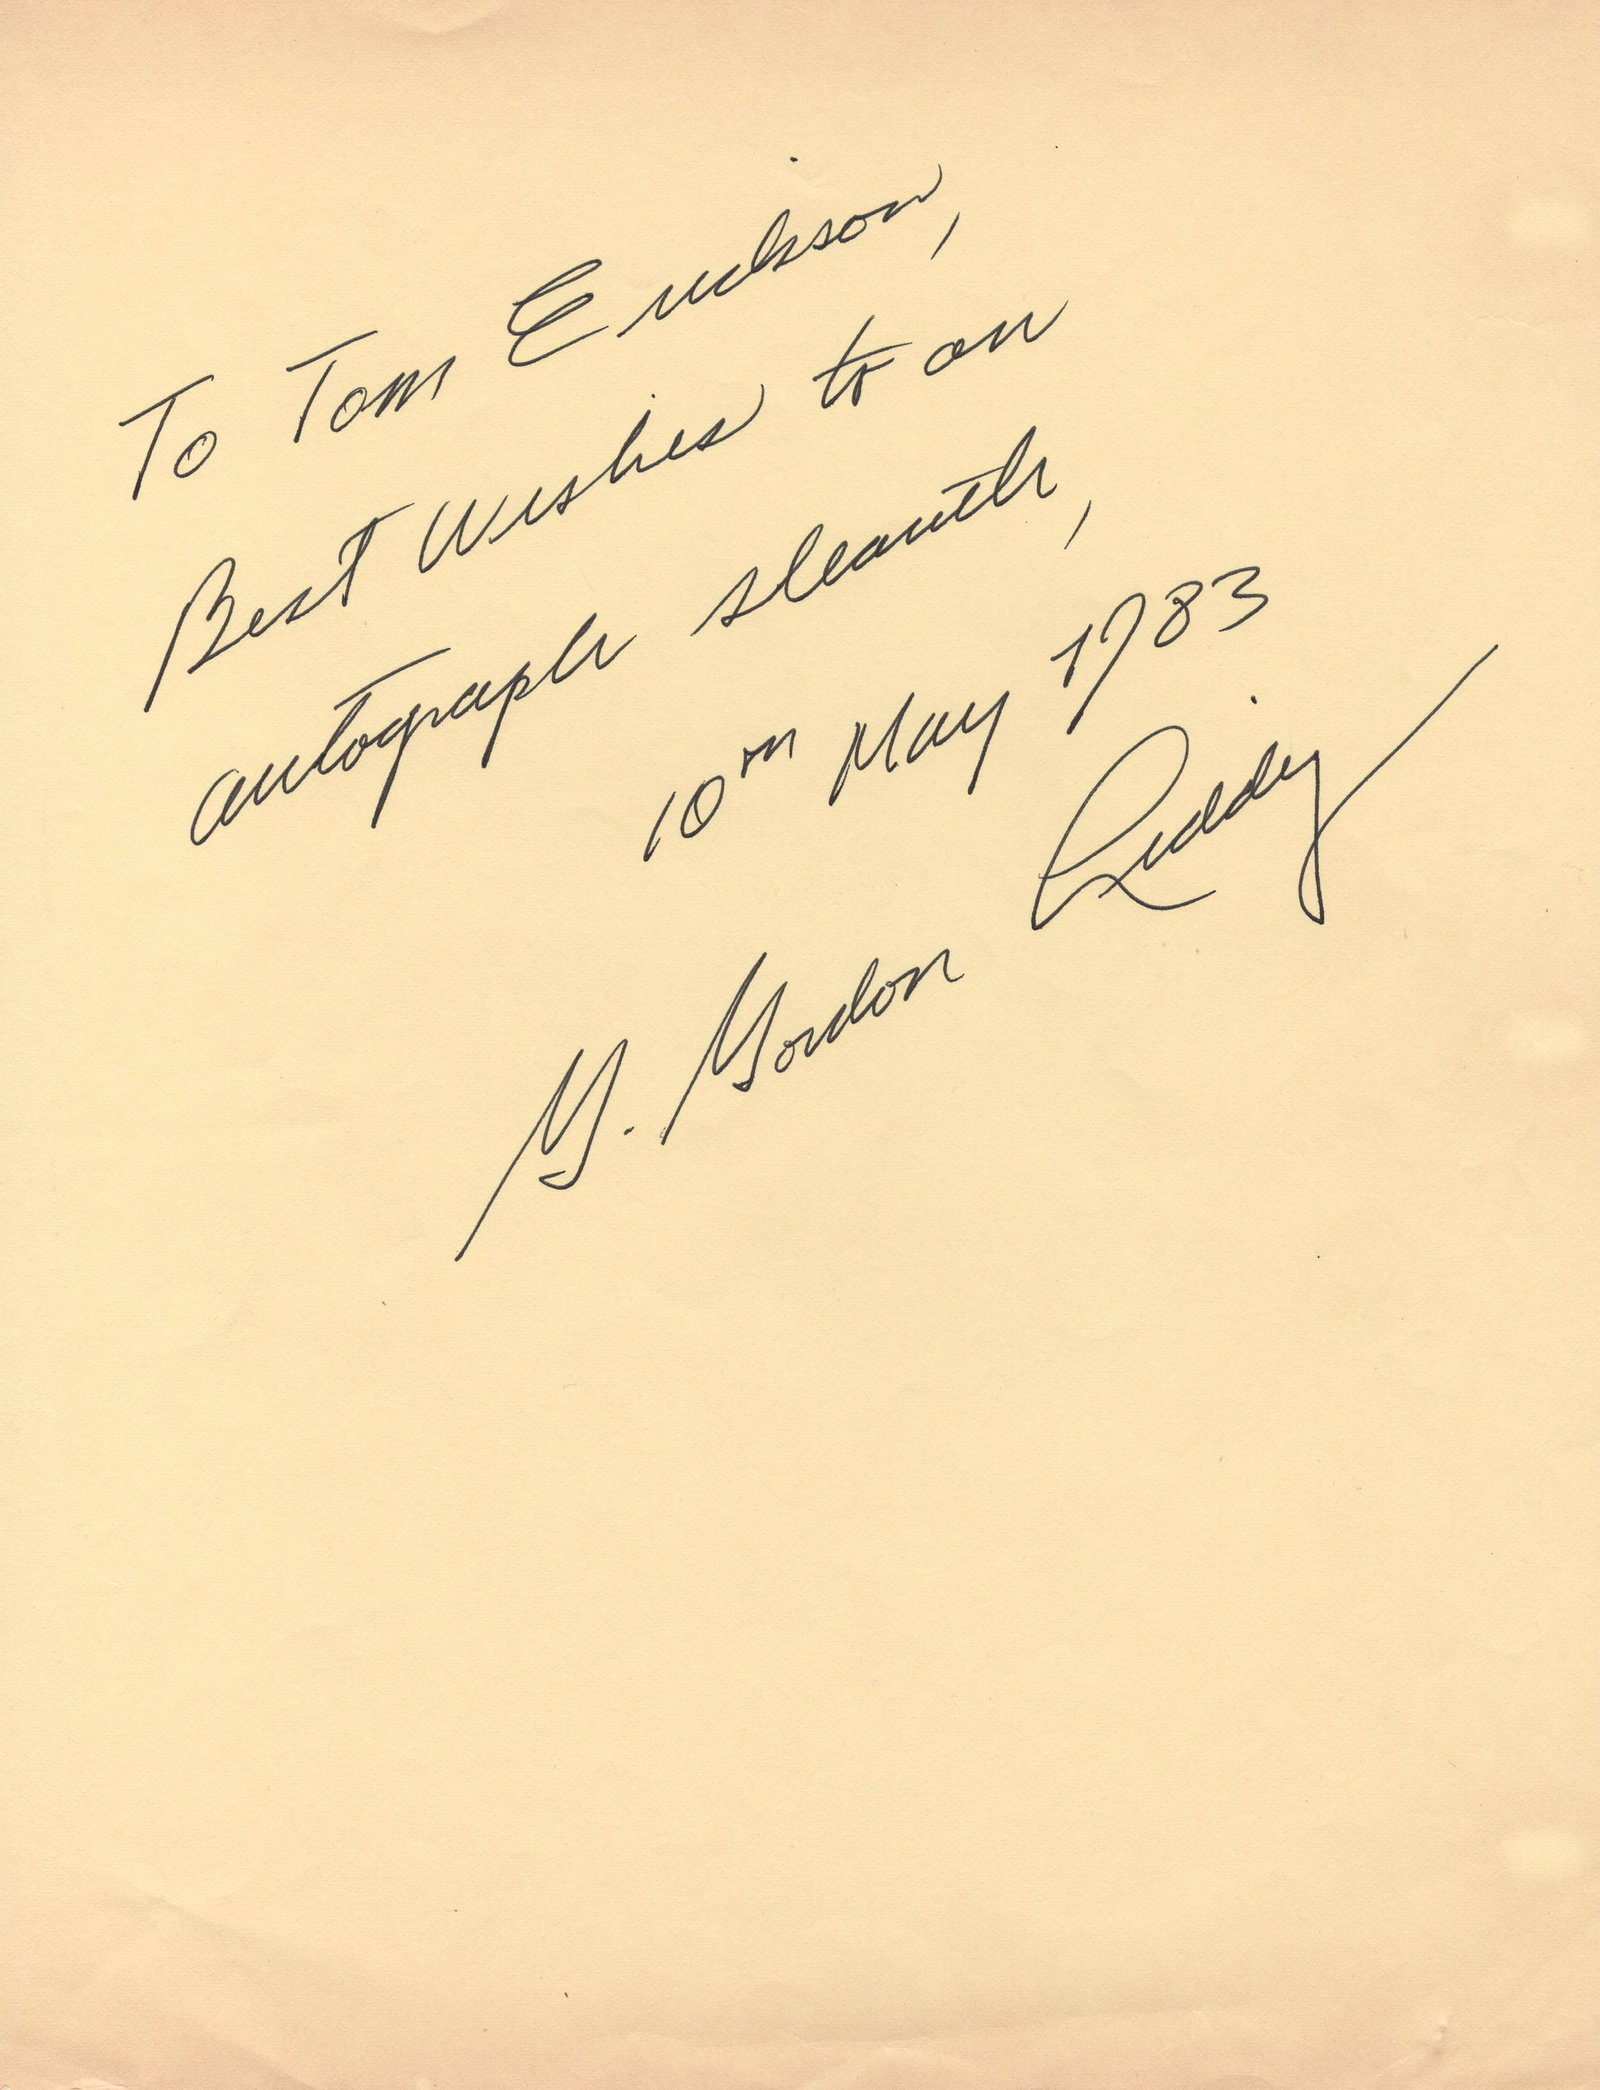 To Tom Erickson,
Best Wishes to an
autograph sleauth,
10th May 1983
G. Gordon Liddy